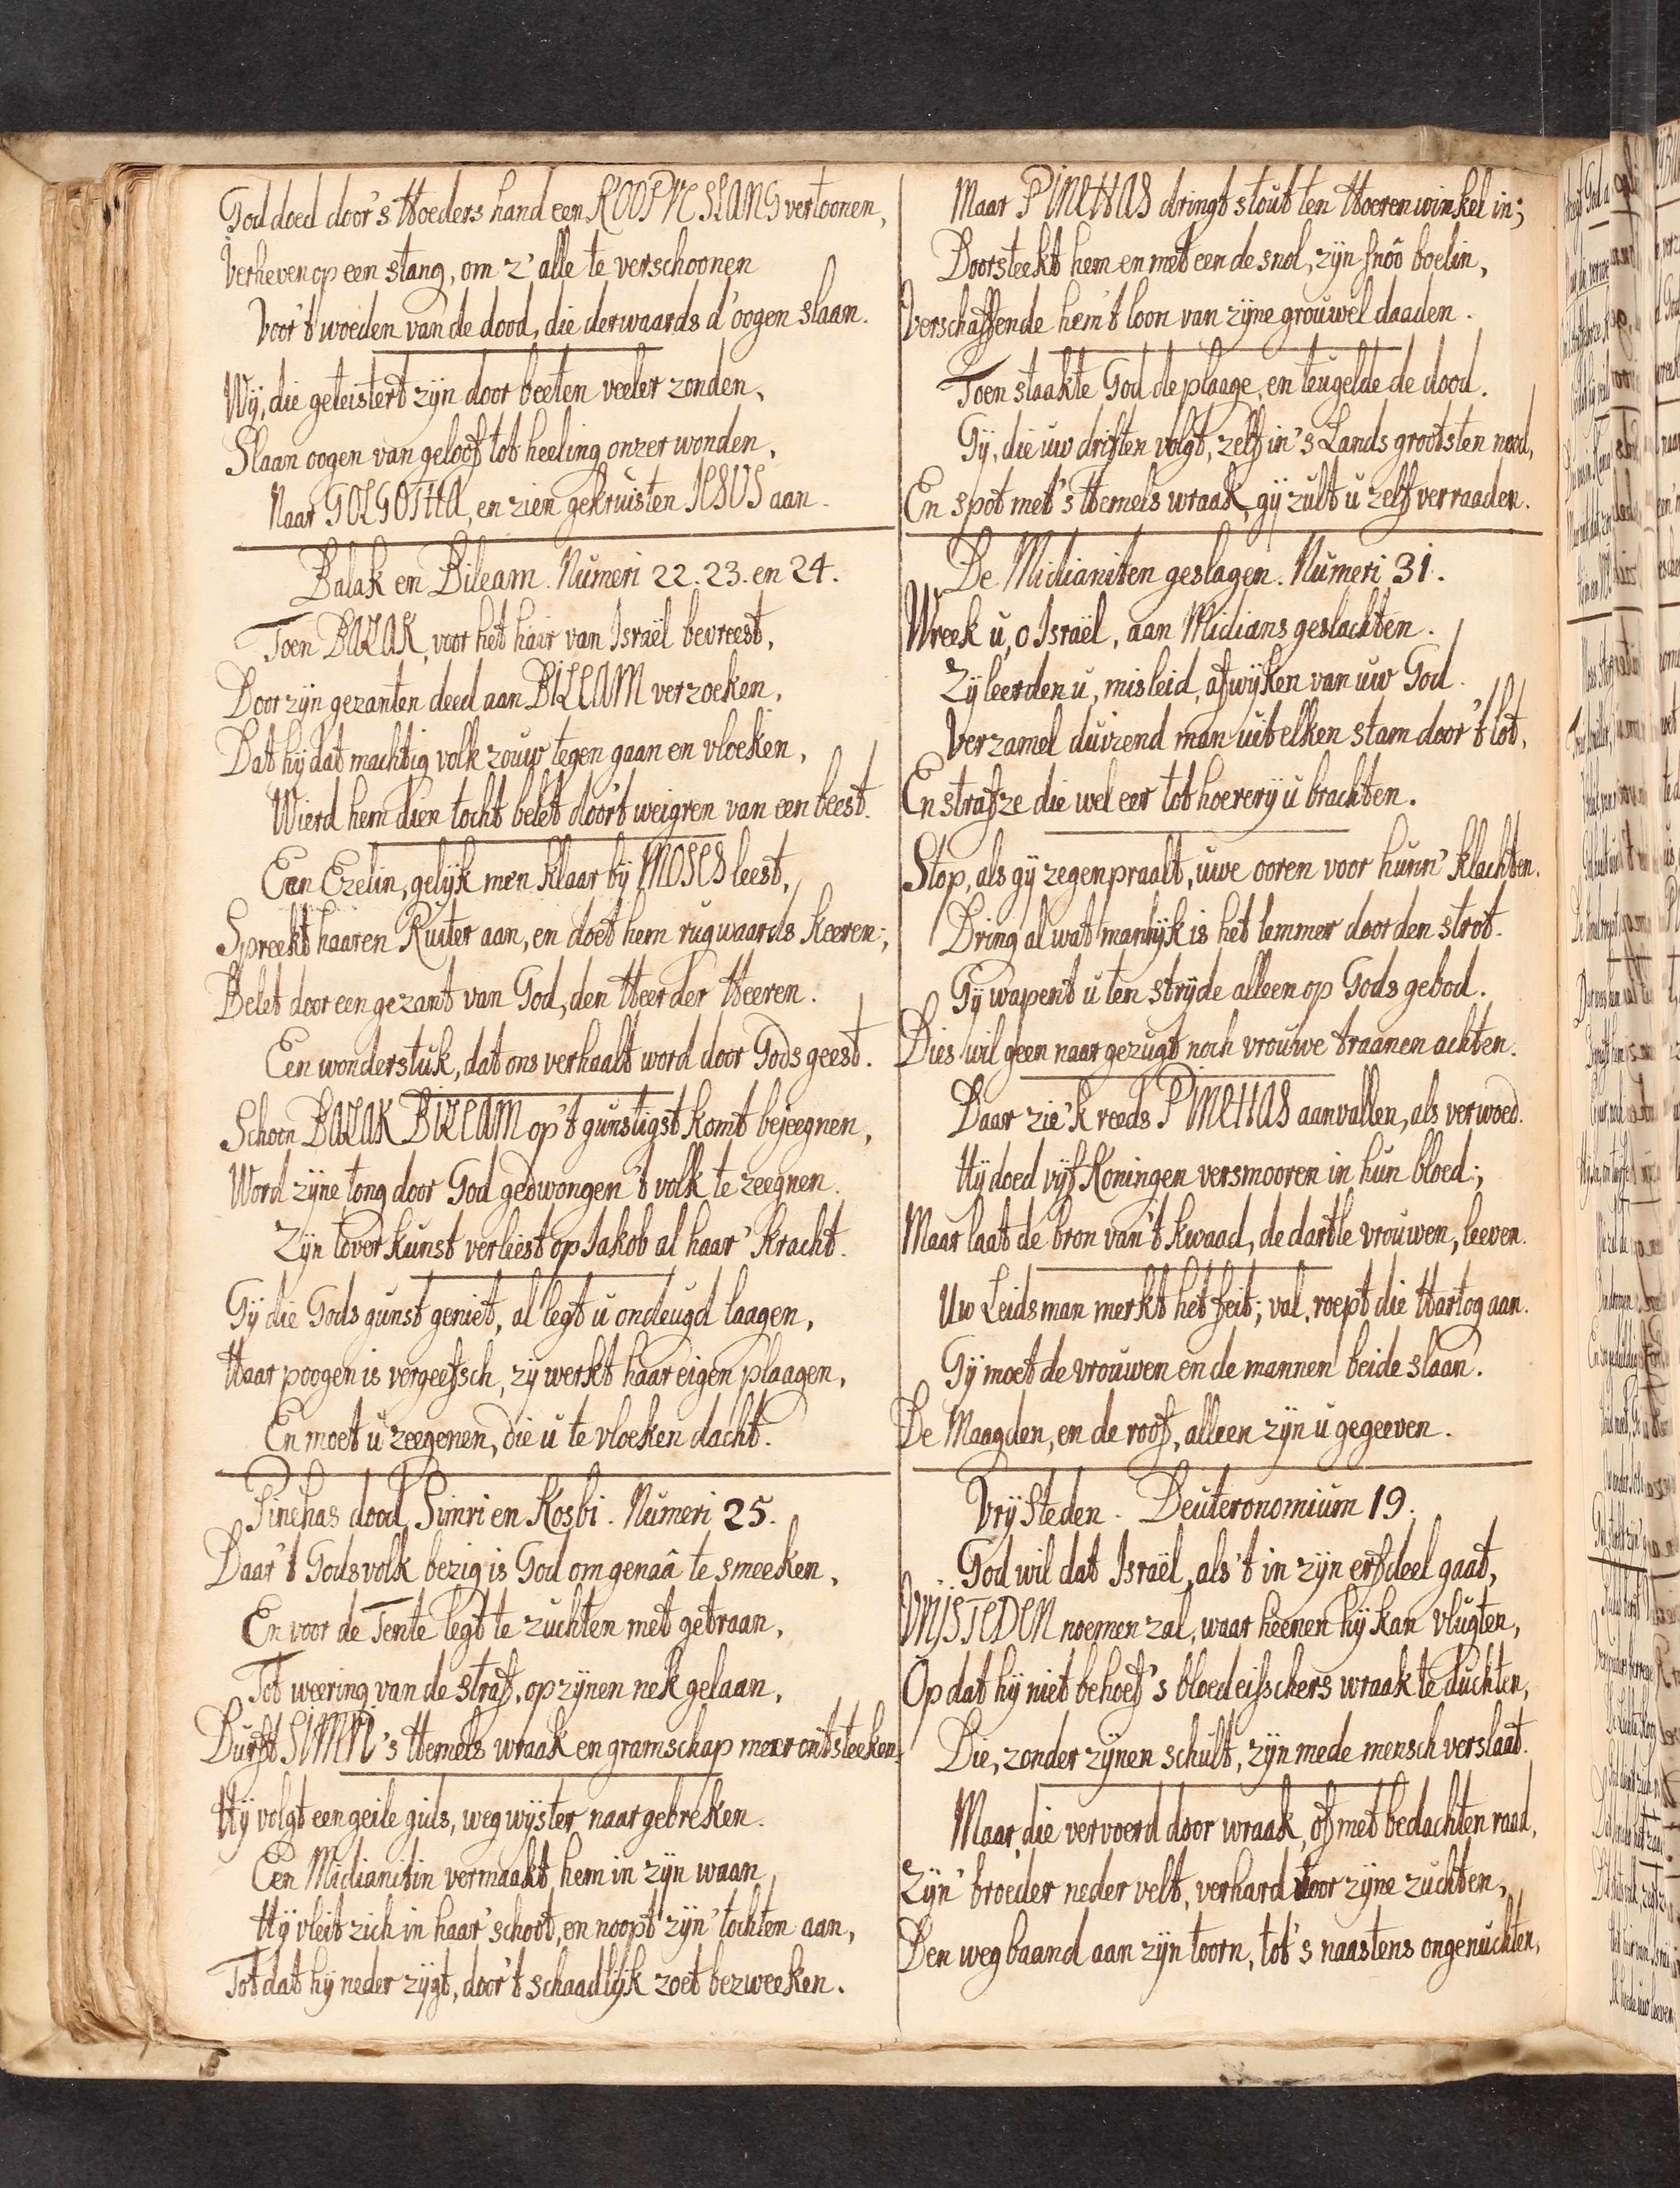 God doed door's Hoeders hand een KOOPRE SLANG vertoonen,
Verheven op een stang, om z'alle te verschoonen
Voor't woeden van de dood, die derwaards d'oogen slaan.
Wÿ, die geteistert zÿn door beeten veeler zonden,
Slaan oogen van geloof tot heeling onzer wonden,
Naar GOLGOTHA, en zien gekruisten JESUS aan.
Balak en Bileam. Numeri 22.23. en 24.
Toen BALAK, voor het hair van Israël bevreest,
Door zÿn gezanten deed aan BILEAM verzoeken,
Dat hÿ dat machtig volk zouw tegen gaan en vloeken,
Wierd hem dien tocht belet door't weigren van een beest.
Een Ezelin, gelÿk men klaar bÿ MOSES leest,
Spreekt haaren Ruiter aan, en doet hem rugwaards keeren;
Belet door een gezant van God, den Heer der Heeren.
Een wonderstuk, dat ons verhaalt word door Gods geest.
Schoon BALAK BILEAM op't gunstigst komt bejeegnen,
Word zÿne tong door God gedwongen't volk te zeegnen.
Zÿn toverkunst verliest op Jakob al haar' kracht.
Gÿ die Gods gunst geniet, al legt u ondeugd laagen,
Haar poogen is vergeefsch, zÿ werkt haar eigen plaagen,
En moet u zeegenen, die u te vloeken dacht.
Pinehas dood Simri en Kosbi. Numeri 25.
Daar't Gods volk bezig is God om genaâ te smeeken,
En voor de Tente legt te zuchten met getraan,
Tot weering van de straf, op zÿnen nek gelaan,
Durft SIMRI's Hemels wraak en gramschap meer ontsteeken.
Hÿ volgt een geile gids, wegwÿster naar gebreken.
Een Midianitin vermaakt hem in zÿn waan,
Hÿ vleit zich in haar' schoot, en noopt zÿn' tochten aan,
Tot dat hÿ neder zÿgt, door't schaadlÿk zoet bezweeken.
Maar PINEHAS dringt stout ten Hoerenwinkel in;
Doorsteekt hem en met een de snol, zÿn snoô boelin,
Verschaffende hem't loon van zÿne grouweldaaden.
Toen staakte God de plaage, en teugelde de dood.
Gÿ, die uw driften volgt, zelf in's Lands grootsten nood,
En spot met's Hemels wraak, gÿ zult u zelf verraaden.
De Midianiten geslagen. Numeri 31.
Wreek u, o Israël, aan Midians geslachten.
Zÿ leerden u, misleid, afwÿken van uw God.
Verzamel duizend man uit elken stam door't lot,
En straf ze die wel eer tot hoererÿ u brachten.
Stop, als gÿ zegenpraalt, uwe ooren voor hunn' klachten.
Dring al wat manlÿk is het lemmer door den strot.
Gÿ wapent u ten strÿde alleen op Gods gebod.
Dies wil geen naar gezugt noch vrouwe traanen achten.
Daar zie'k reeds PINEHAS aanvallen, als verwoed.
Hÿ doed vÿf Koningen versmooren in hun bloed;
Maar laat de bron van't kwaad, de dartle vrouwen, leeven.
Uw Leidsman merkt het feit; val, roept die Hartog aan.
Gÿ moet de vrouwen en de mannen beide slaan.
De Maagden, en de roof, alleen zÿn u gegeeven.
Vrÿ Steden. Deuteronomium 19.
God wil dat Israël, als't in zÿn erfdeel gaat,
VRŸSTEDEN noemen zal, waar heenen hÿ kan vlugten,
Op dat hÿ niet behoef's bloedeisschers wraak te duchten,
Die, zonder zÿnen schult, zÿn mede mensch verslaat.
Maar, die vervoerd door wraak, of met bedachten raad,
Zÿn' broeder neder velt, verhard voor zÿne zuchten,
Den weg baand aan zÿn toorn, tot's naastens ongenuchten,